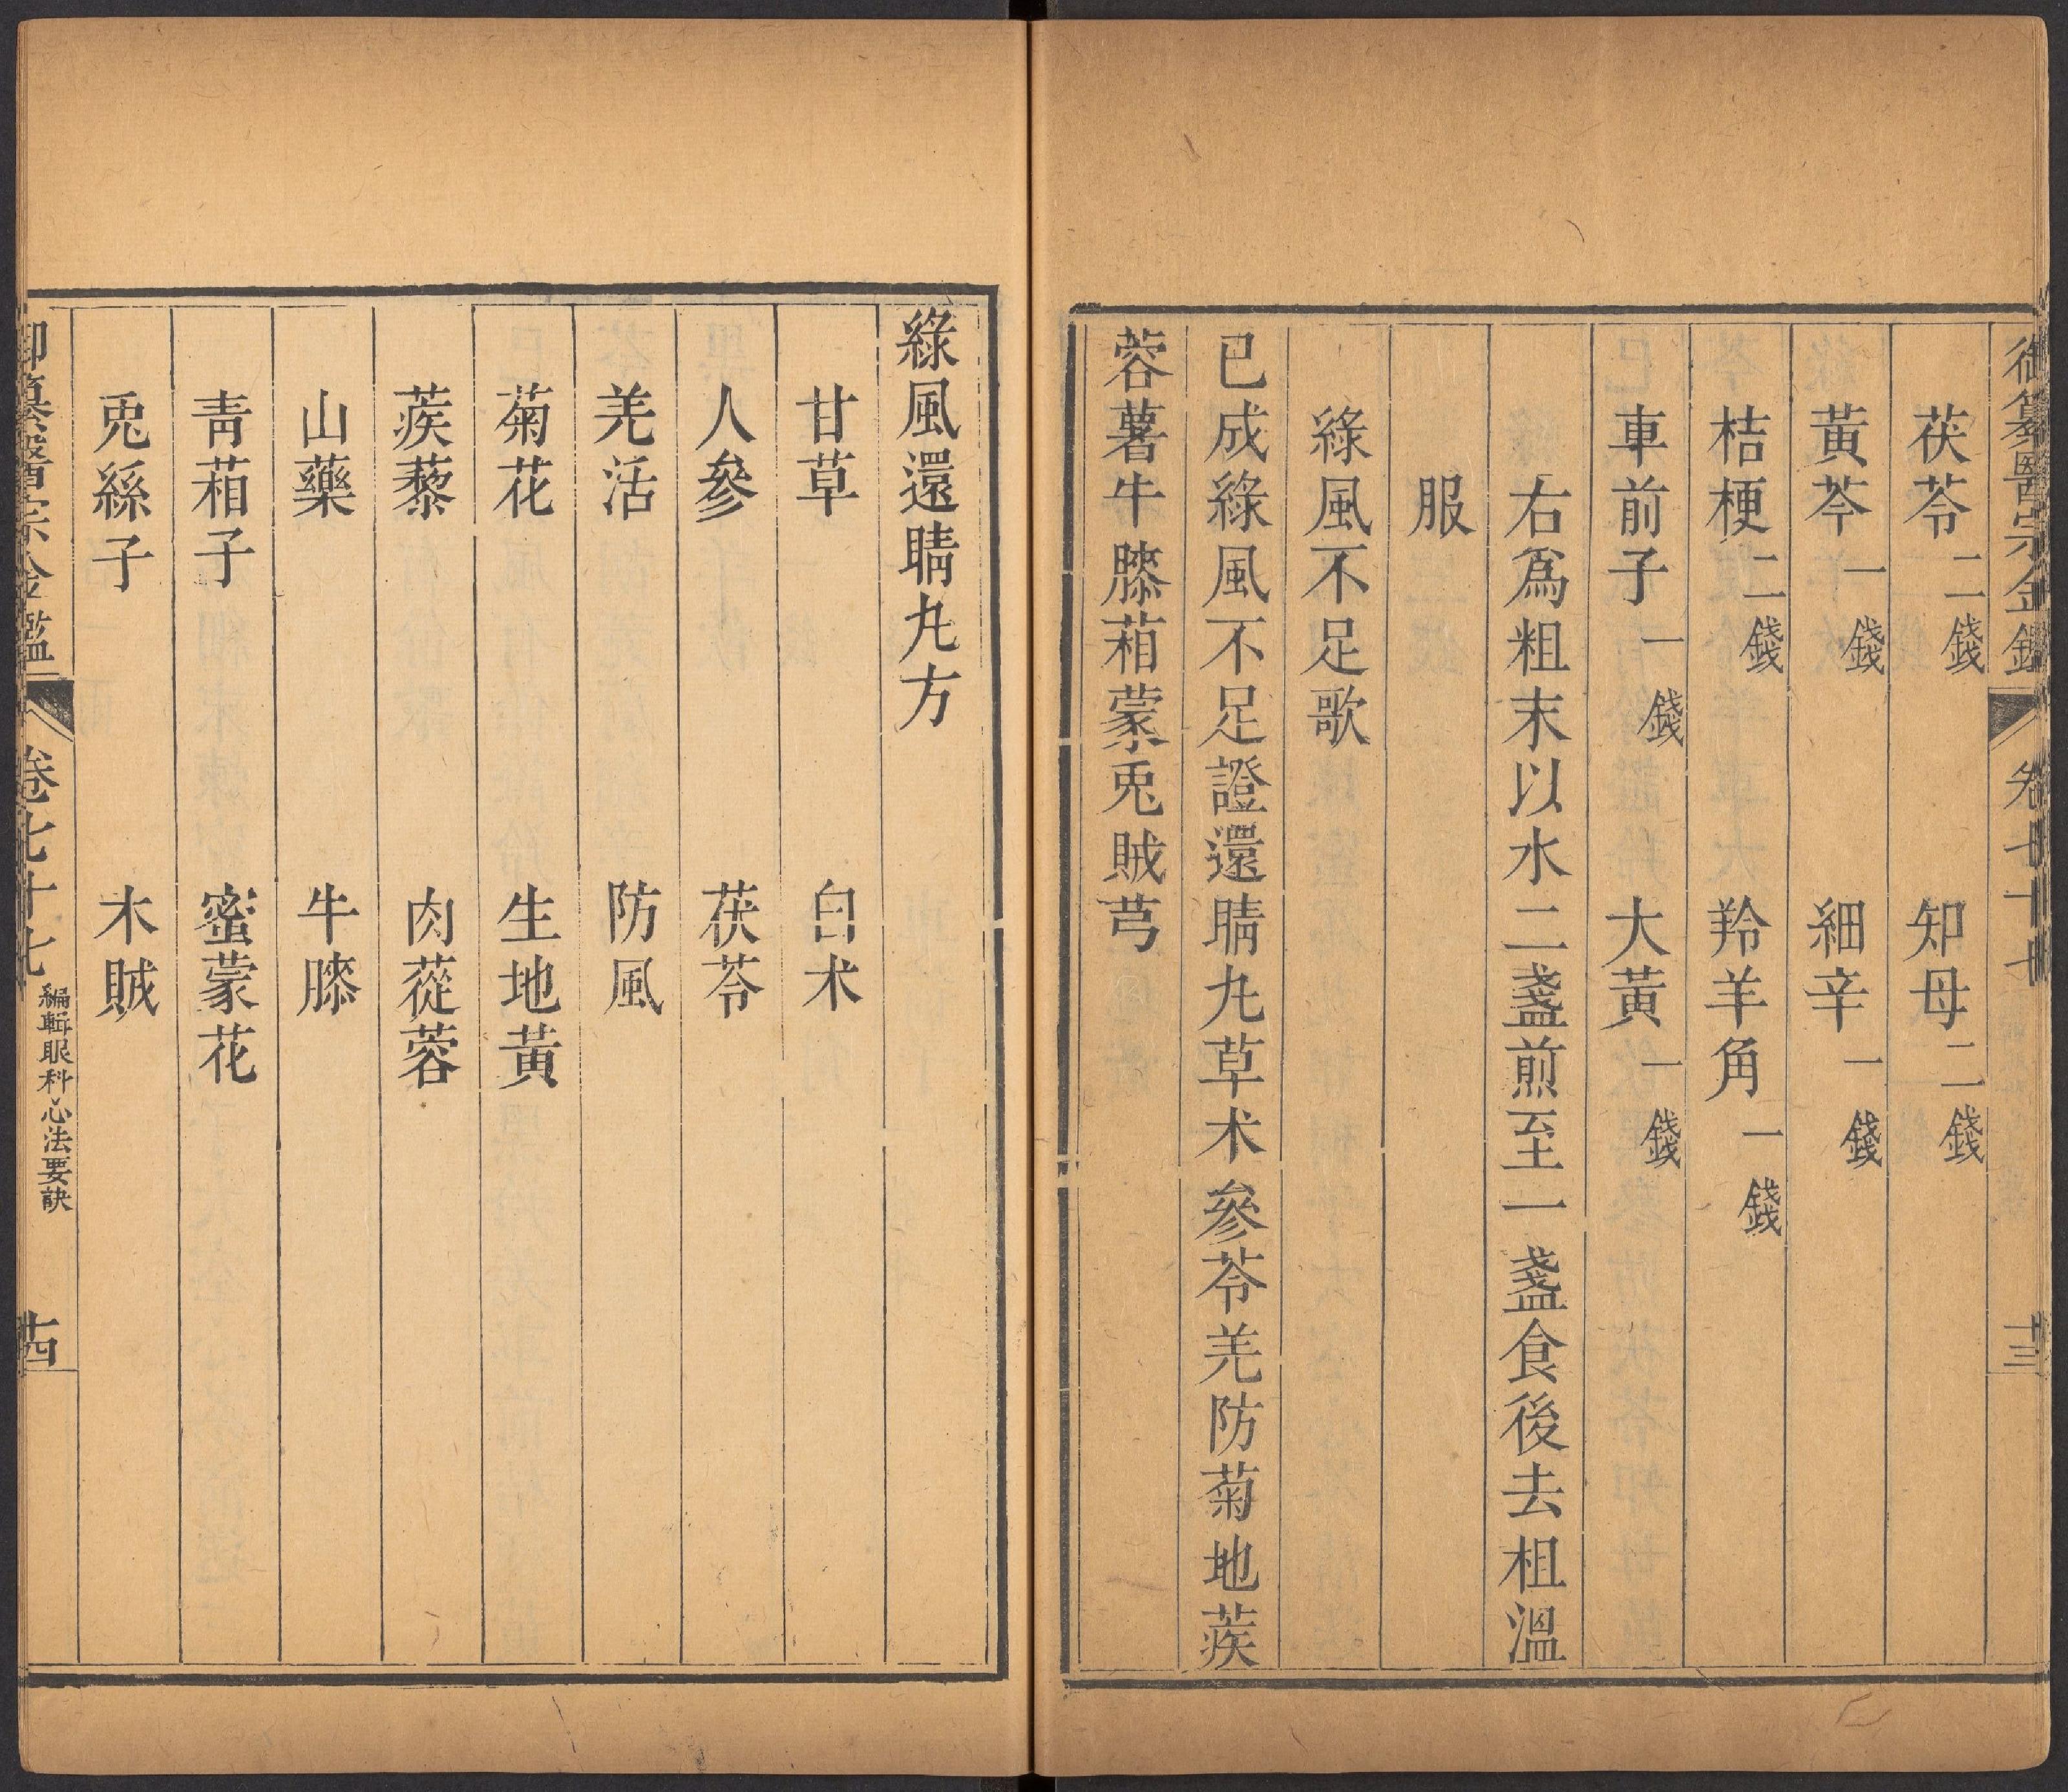 御纂醫宗金鑑 卷七十七 十三
茯苓二錢 知母二錢
黃芩一錢 細辛一錢
桔梗二錢 羚羊角一錢
車前子一錢 大黃一錢
右爲粗末以水二盞煎至一盞食後去柤溫
服
綠風不足歌
已成綠風不足證還睛九草术參苓羌防菊地蒺
蓉薯牛膝葙蒙兎賊芎
綠風還睛九方
甘草 白术
人參 茯苓
羌活 防風
菊花 生地黃
蒺藜 肉蓯蓉
山藥 牛膝
靑葙子 蜜蒙花
兎絲子 木賊
御纂醫宗金鑑 卷七十七 編輯眼科心法要訣 十四